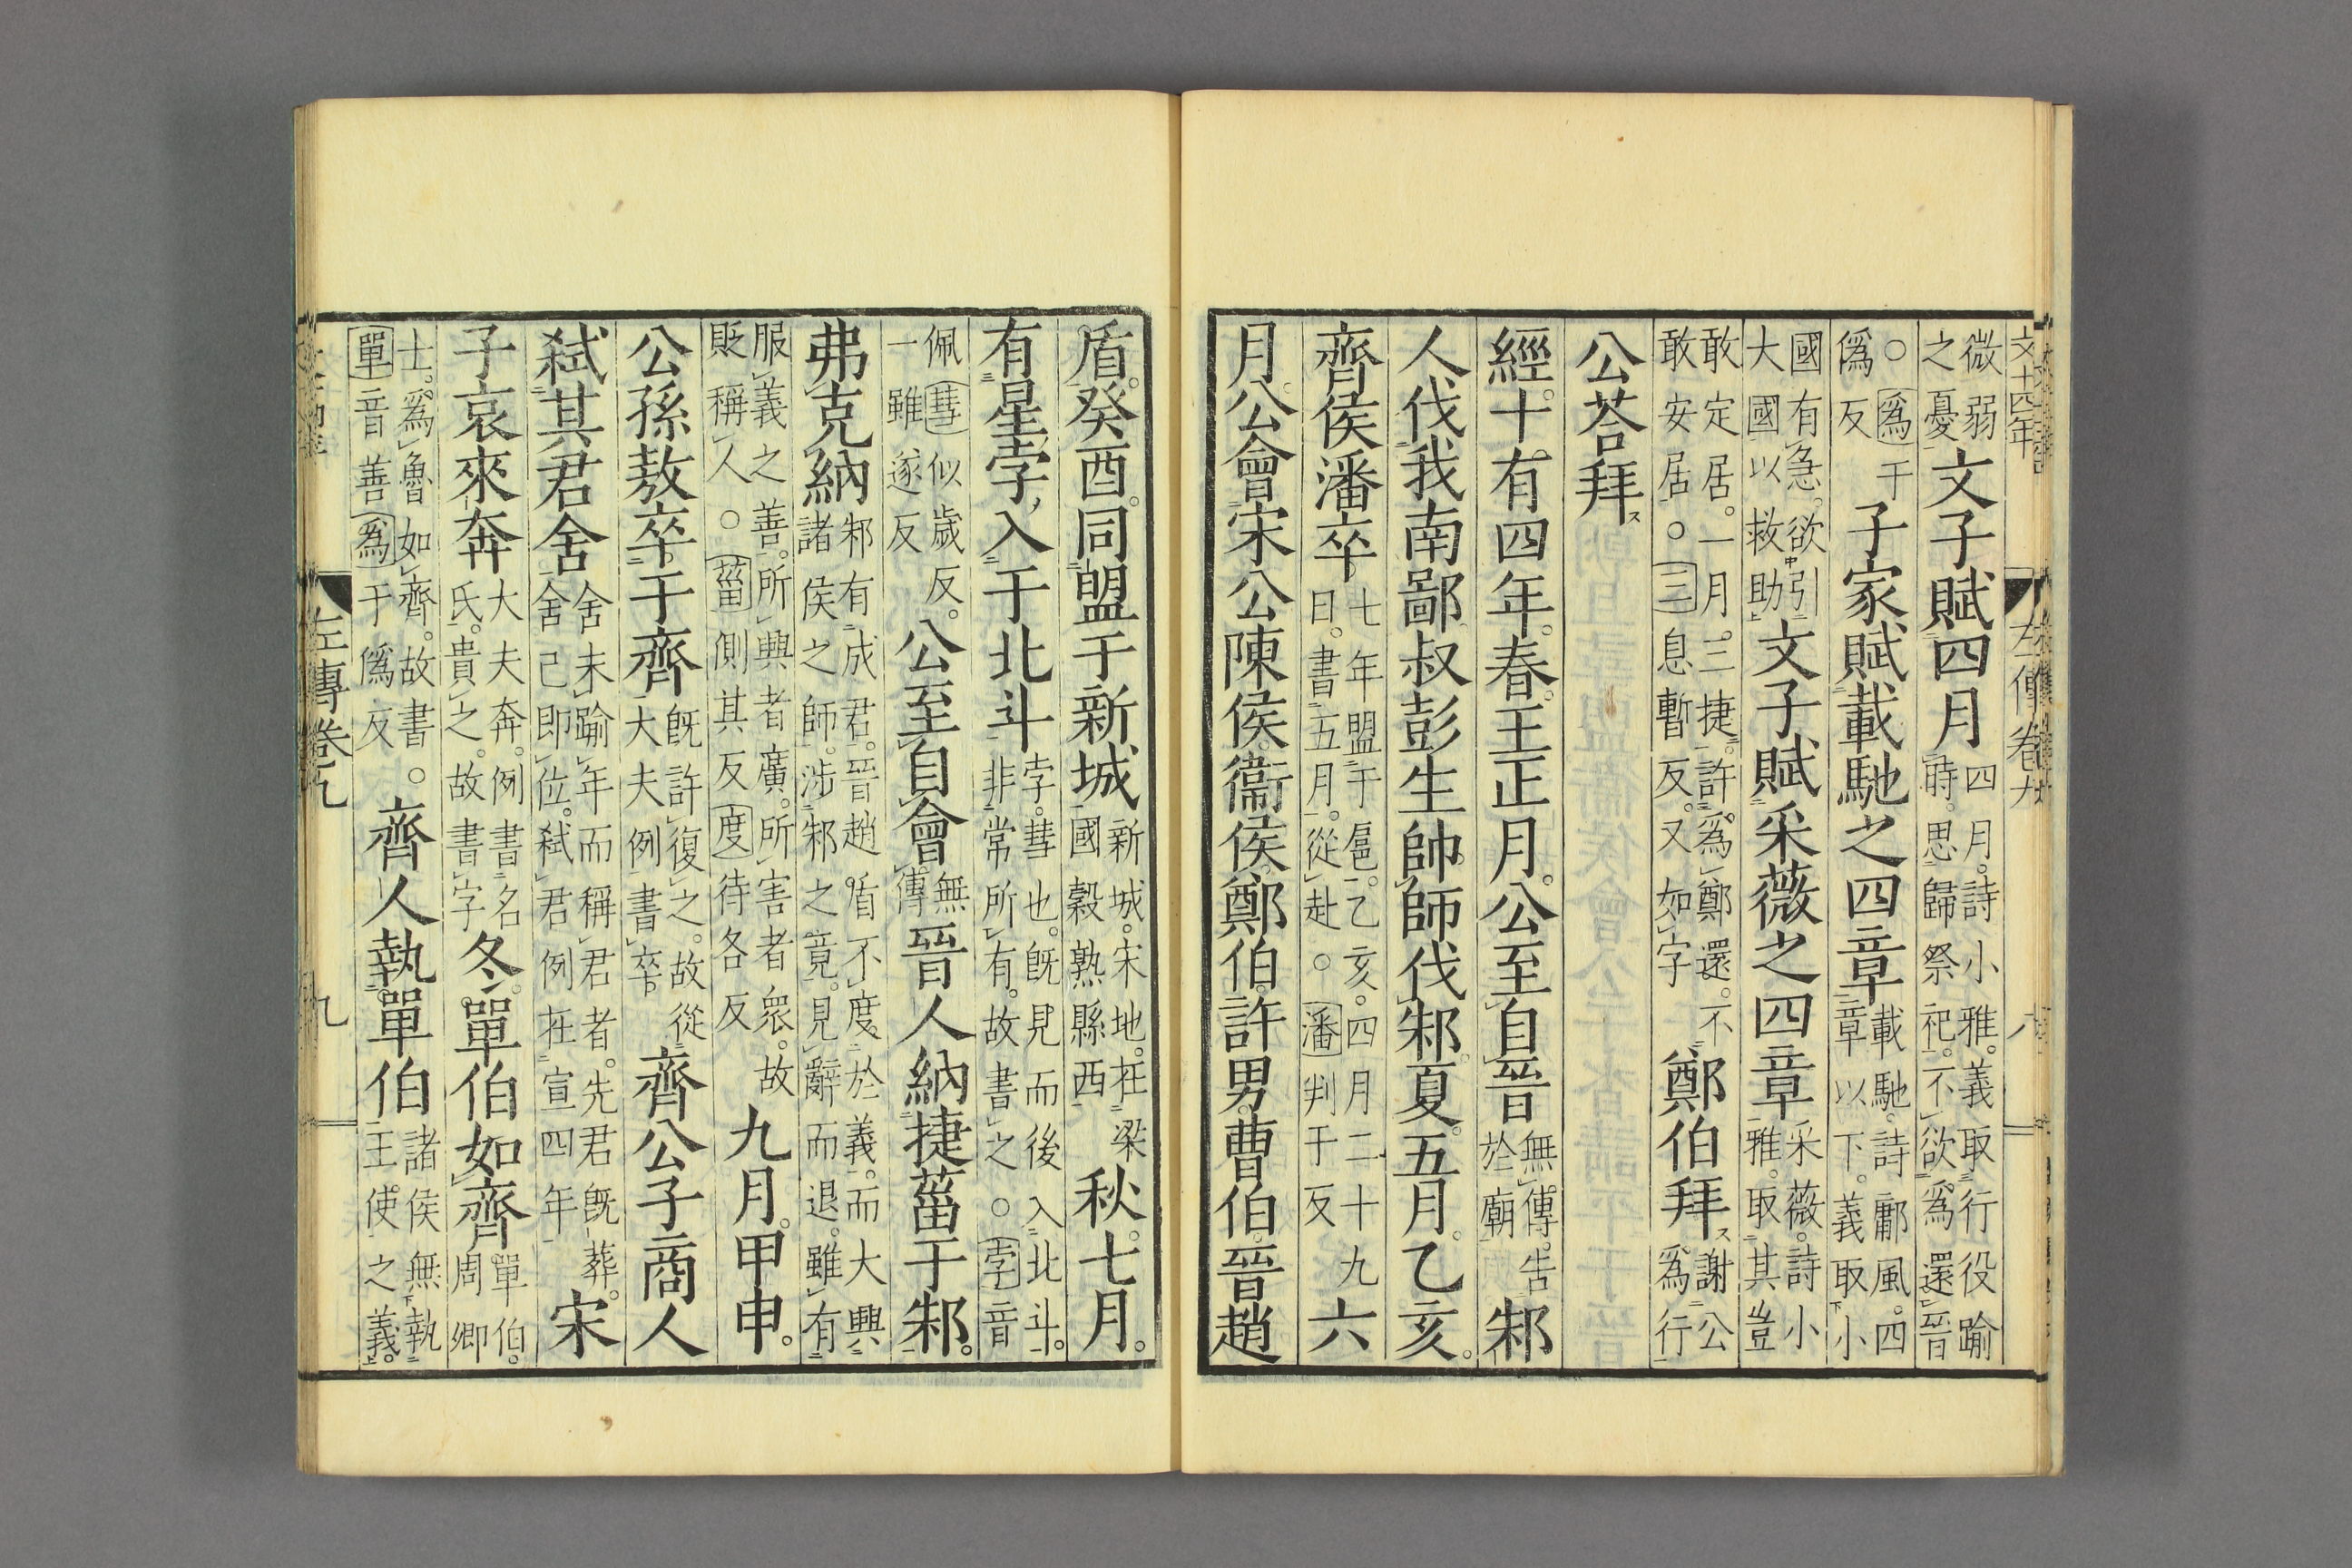 文十四年 左傳卷九 八
微弱之憂文子賦四月四月詩小雅義取行役踰時思歸祭祀不欲爲還晉
○爲于僞反子家賦載馳之四章載馳詩鄘風四章以下義取小
國有急欲引大國以救助文子賦采薇之四章采薇詩小雅取其豈
敢定居一月三捷許爲鄭還不敢安居○三息暫反又如字鄭伯拜謝公爲行
公荅拜
經十有四年春王正月公至自晉無傳告於廟邾
人伐我南鄙叔彭生帥師伐邾夏五月乙亥
齊侯潘卒七年盟于扈乙亥四月二十九日書五月從赴○潘判于反六
月公會宋公陳侯衞侯鄭伯許男曹伯晉趙
盾癸酉同盟于新城新城宋地在梁國穀熟縣西秋七月
有星孛入于北斗孛彗也既見而後入北斗非常所有故書之○孛音
佩彗似歲反一雖遂反公至自會無傳晉人納捷菑于邾
弗克納邾有成君晉趙盾不度於義而大興諸侯之師涉邾之竟見辭而退雖有
服義之善所興者廣所害者衆故貶稱人○菑側其反度待各反九月甲申
公孫敖卒于齊既許復之故從大夫例書卒齊公子商人
弑其君舍舍未踰年而稱君者先君既葬舍已即位弑君例在宣四年宋
子哀來奔大夫奔例書名氏貴之故書字冬單伯如齊單伯周卿
士爲魯如齊故書○單音善爲于僞反齊人執單伯諸侯無執王使之義
左傳卷九 九